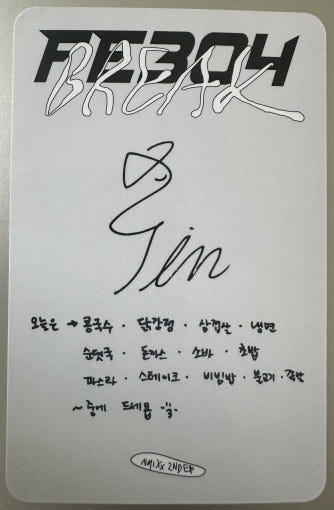 FE3O4
BREAK
Jin
오늘은 → 콩국수 · 닭강정 · 삼겹살 · 냉면
순댓국 · 돈까스 · 소바 · 초밥
파스타 · 스테이크 · 비빔밥 · 불고기 · 족발
~ 중에 드세욥
NMIXX 2ND EP